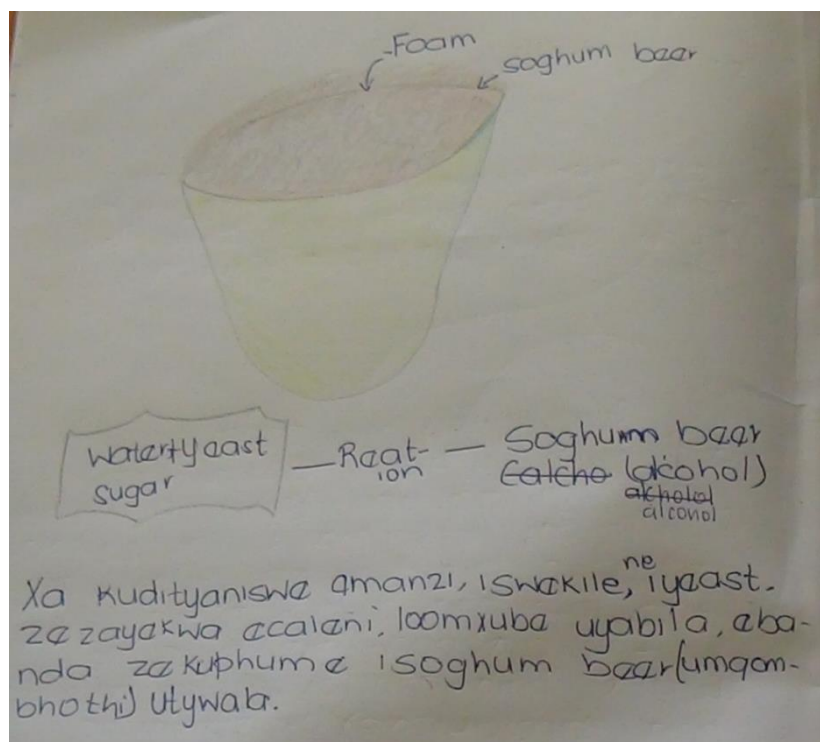 Foam
soghum beer
water+yeast
sugar
Reat-
ion
Soghum beer
Ealcho (alcohol)
akholol
alcohol
Xa kudityaniswe amanzi, iswekile, ne iyeast.
ze zayekwa ecaleni, loomxube uyabila, eba-
nda ze kuphume isoghum beer(umqom-
bhothi) utywala.